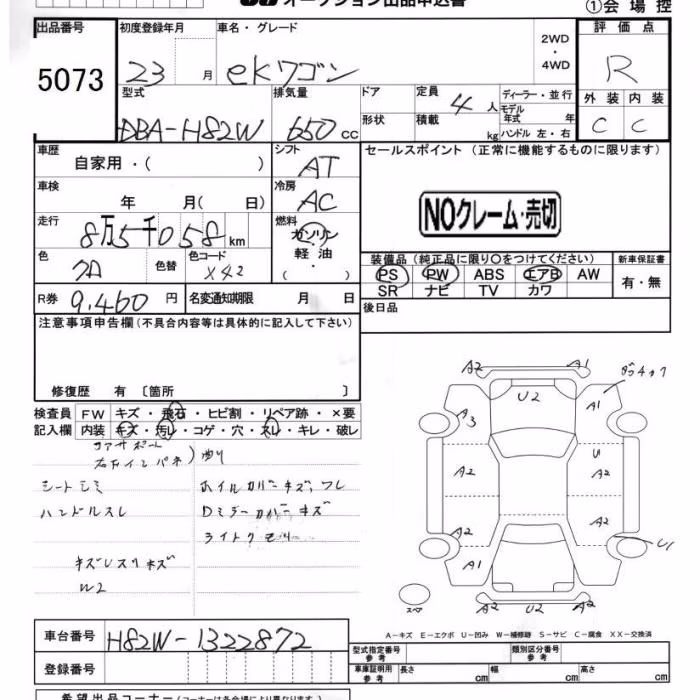 オークション出品申込書
①会場控
出品番号 初度登録年月 車名・グレード 2WD・4WD 評価点
5073 23 月 ekワゴン R
型式 排気量 ドア 定員 4 人 ディーラー・並行 外装 内装
DBA-H82W 650 cc 形状 積載 kg モデル年式 年 C C
ハンドル 左・右
車歴 自家用・( ) シフト AT セールスポイント (正常に機能するものに限ります)
車検 年 月( 日) 冷房 AC
NOクレーム・売切
走行 8万5千058 km 燃料 ガソリン 軽油 ( ・ )
色 クロ 色替 色コード X42
装備品 (純正品に限り○をつけてください) 新車保証書
PS PW ABS エアB AW 有・無
SR ナビ TV カワ
R券 9,460 円 名変通知期限 月 日
後日品
注意事項申告欄 (不具合内容等は具体的に記入して下さい)
修復歴 有 〔箇所 〕
検査員 FW キズ・飛石・ヒビ割・リペア跡・×要
記入欄 内装 キズ・汚レ・コゲ・穴・スレ・キレ・破レ
コアサポート
右インパネ) 曲り
シートシミ ホイルカバーキズ、ワレ
ハンドルスレ Dミラーカバーキズ
ライトクモリ
キズ
W2
A2 A1
U2 A1
A3
A2 U
A2
A2 U1
A1 A1
A2 U2 A2
A-キズ E-エクボ U-凹み W-補修跡 S-サビ C-腐食 XX-交換済
車台番号 H82W-1322872
登録番号
型式指定番号 参考 類別区分番号 参考
車庫証明用 参考 長さ cm 幅 cm 高さ cm
希望出品コーナー (コーナーは各会場により異なります。)